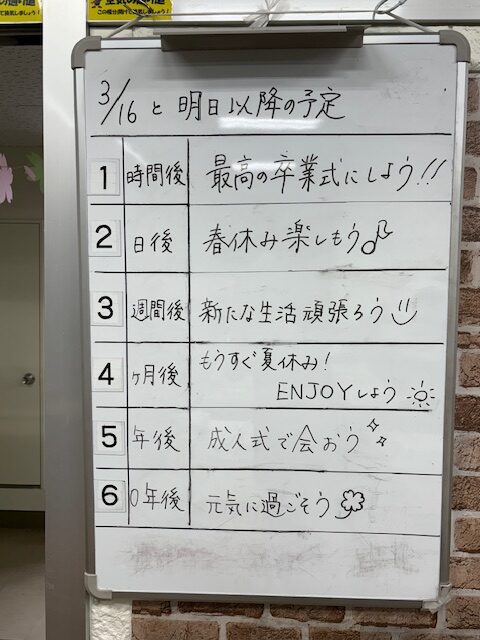 3/16と明日以降の予定
1 時間後 最高の卒業式にしよう!!
2 日後 春休み楽しもう♪
3 週間後 新たな生活頑張ろう
4 ヶ月後 もうすぐ夏休み!
ENJOYしよう
5 年後 成人式で会おう
6 0年後 元気に過ごそう